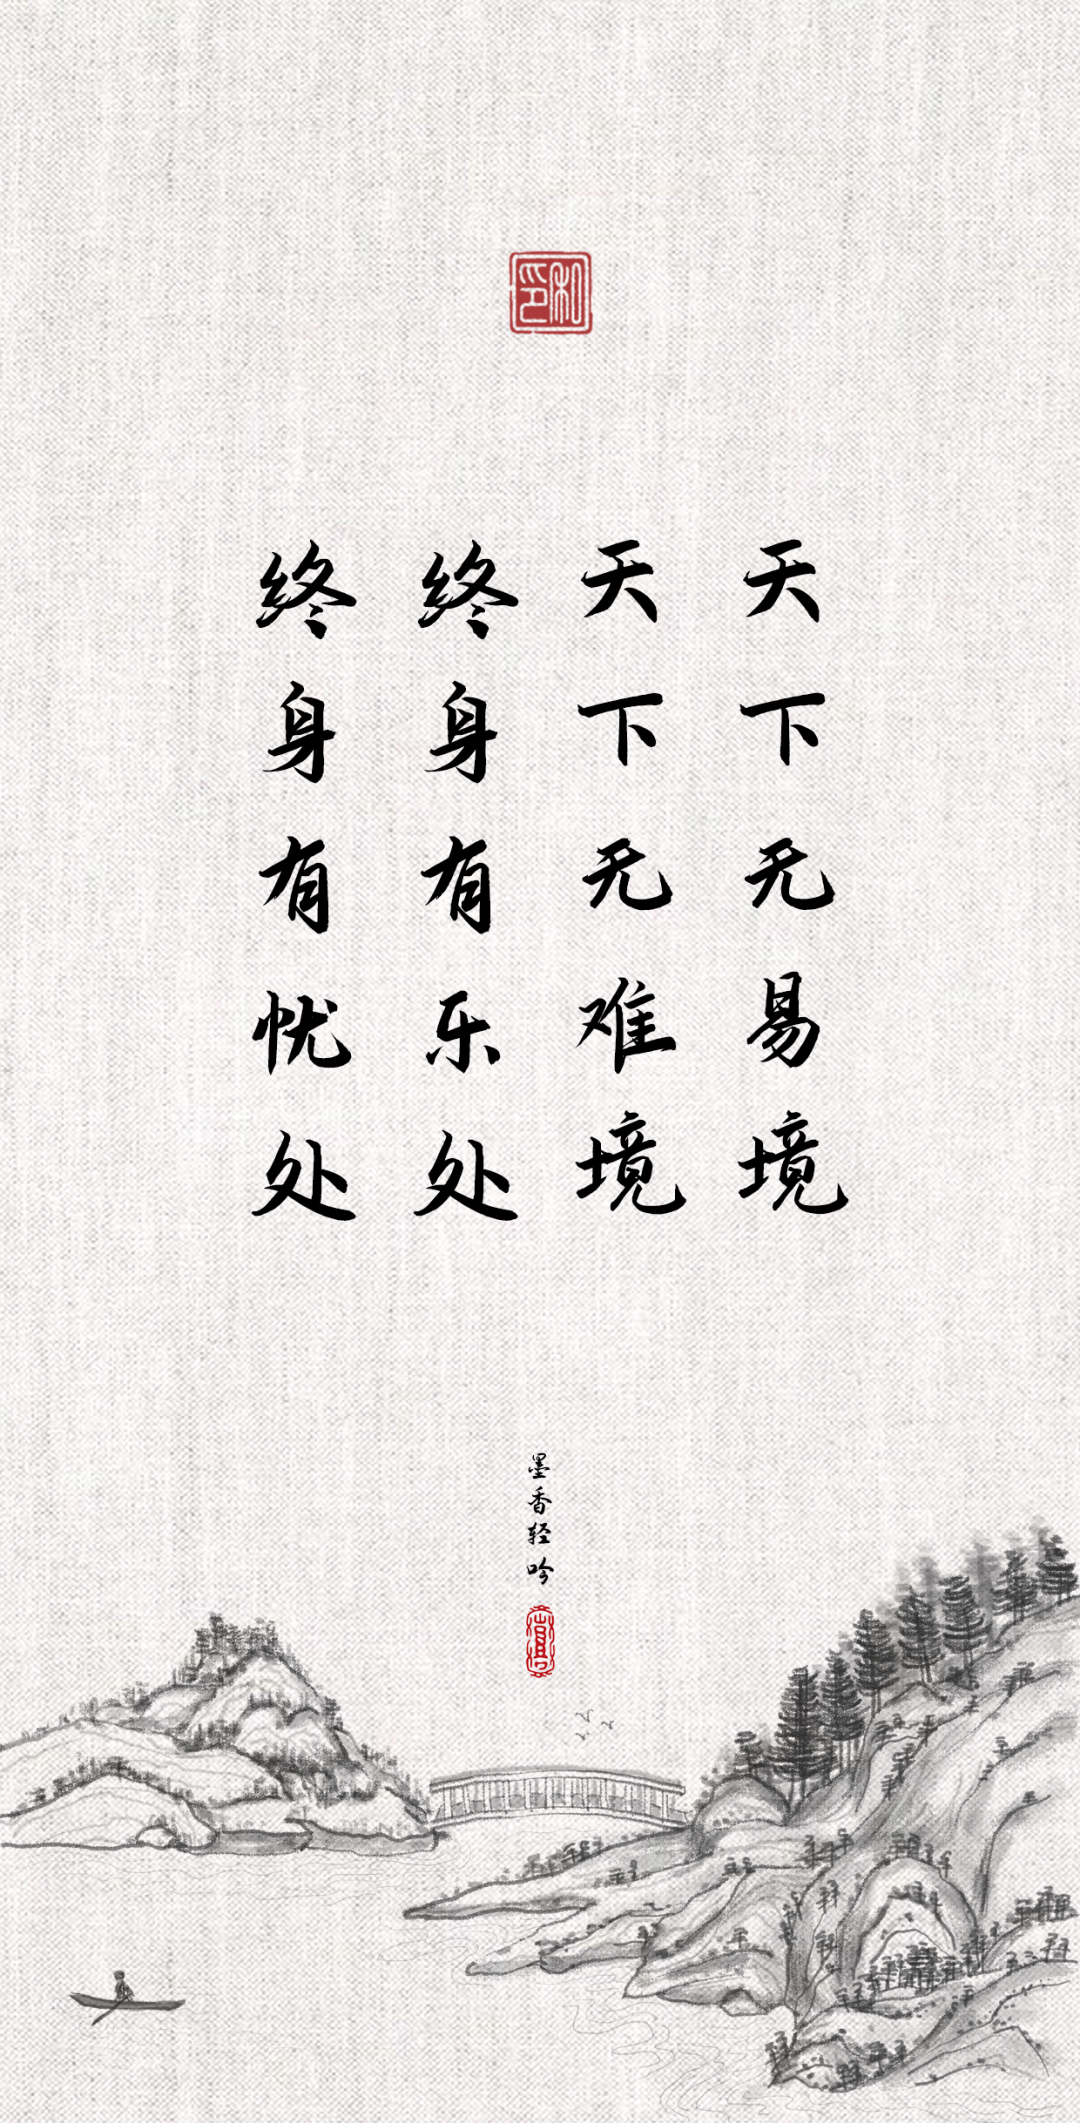 和印
天下无易境
天下无难境
终身有乐处
终身有忧处
墨香轻吟